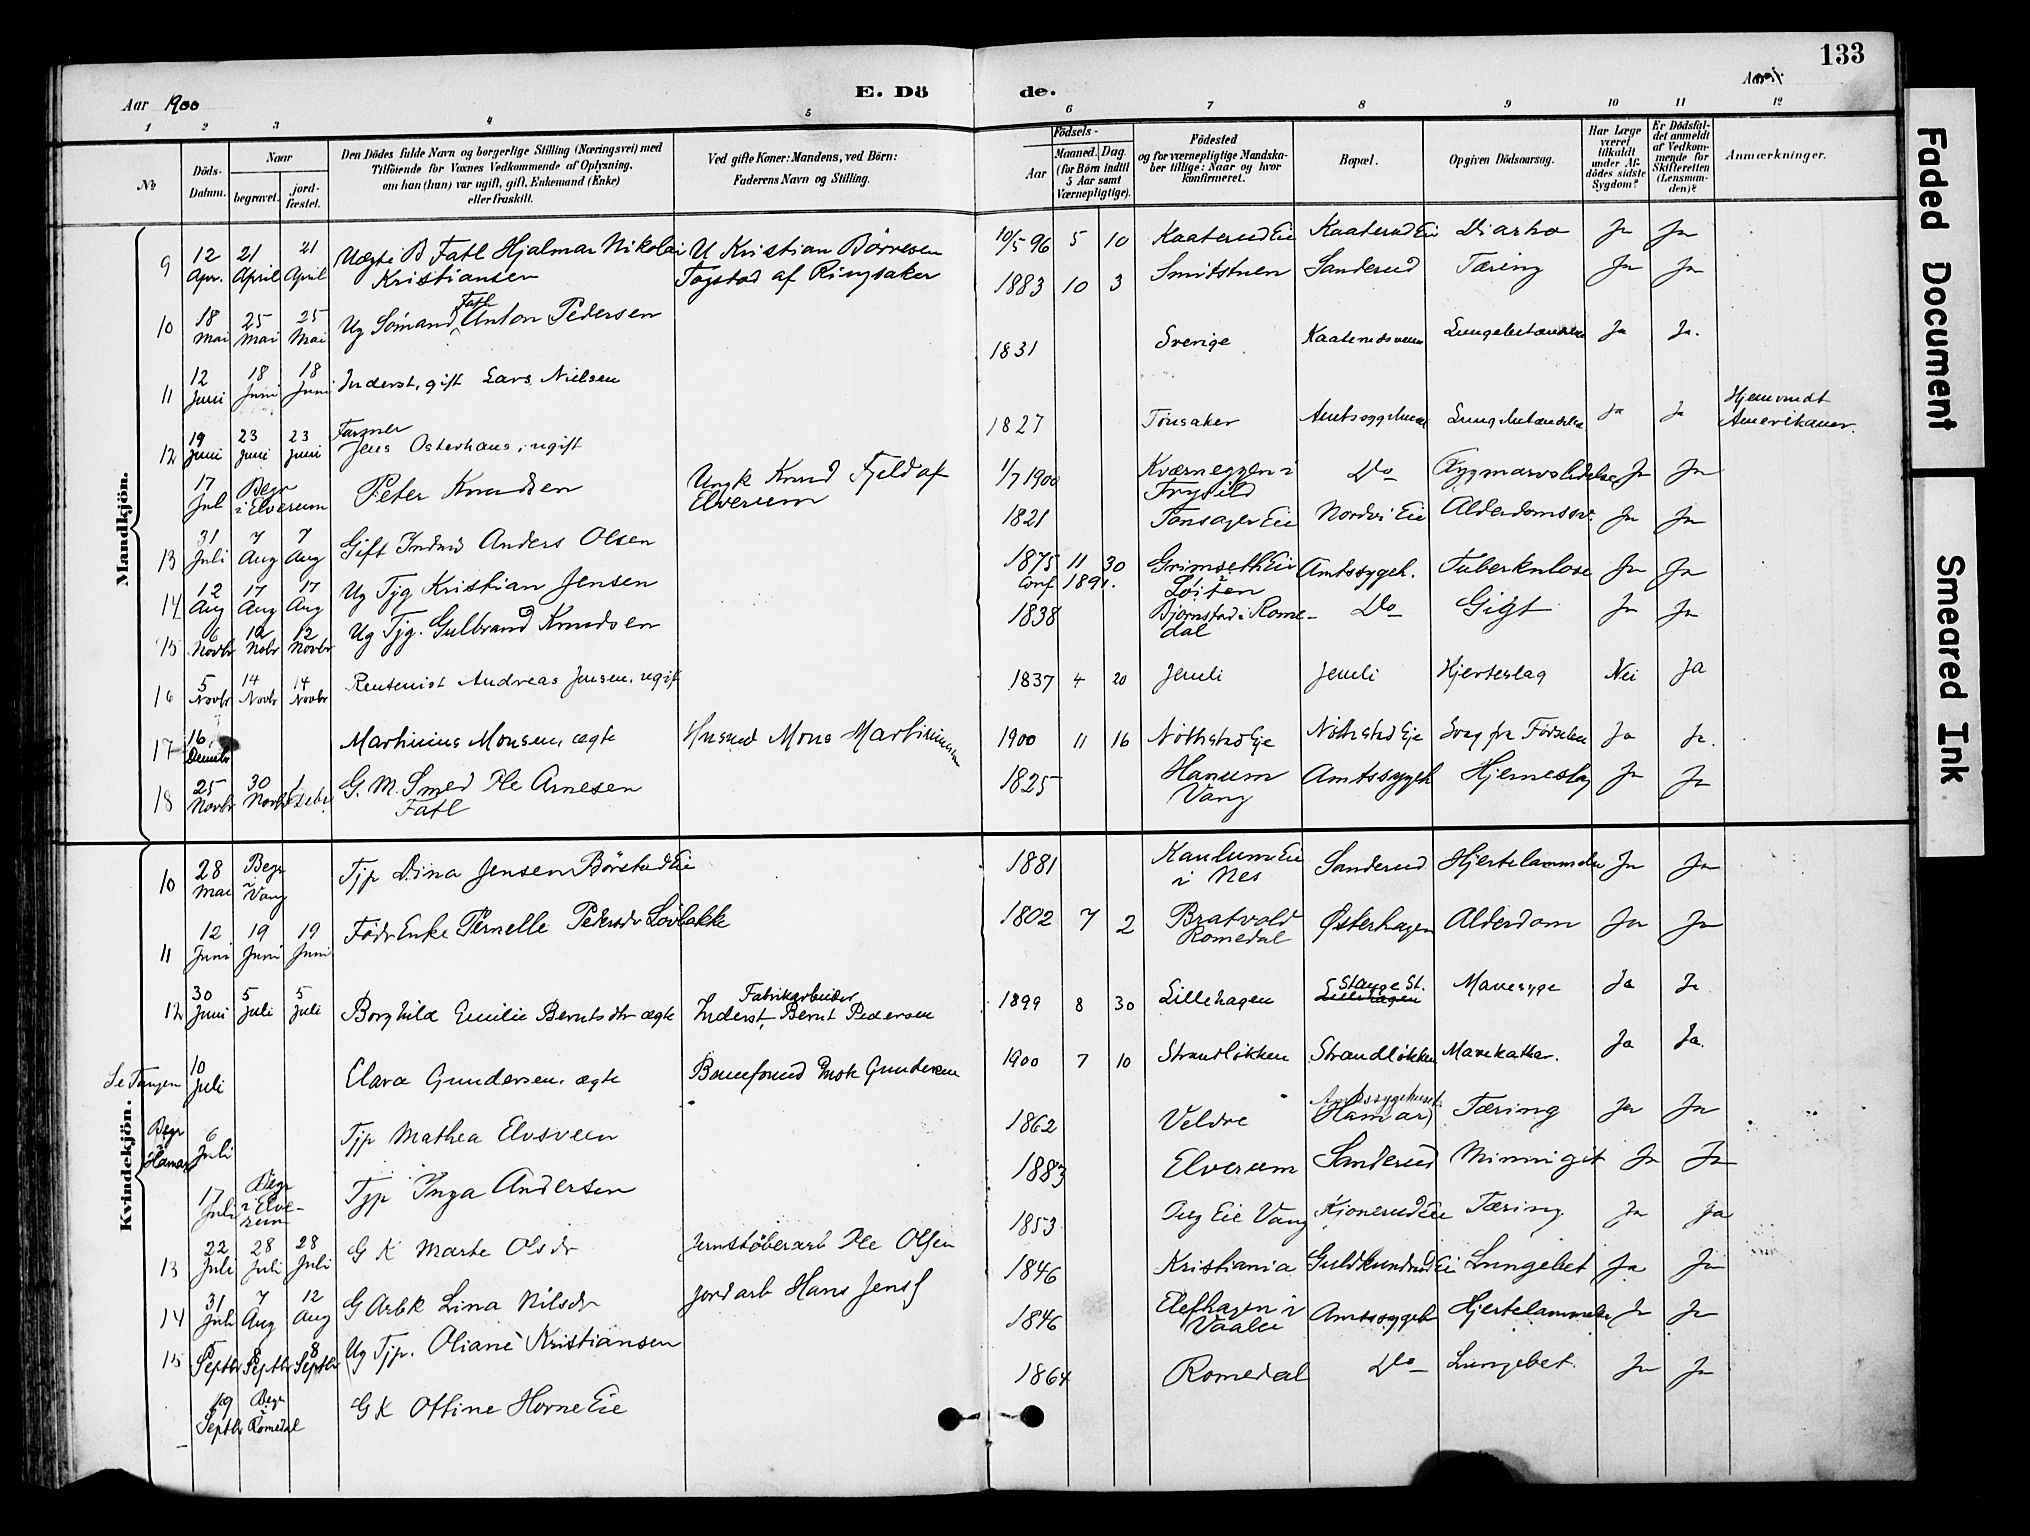 133
Aar 1900
E. Dö de.
Aar
1 2 3 4 5 6 7 8 9 10 11 12
№
Döds-Datum.
Naar
begravet.
jord-fæstet.
Den Dödes fulde Navn og borgerlige Stilling (Næringsvei) med
Tilföiende for Voxnes Vedkommende af Oplysning,
om han (hun) var ugift, gift, Enkemand (Enke)
eller fraskilt.
Ved gifte Koner: Mandens, ved Börn:
Faderens Navn og Stilling.
Födsels-
Aar
Maaned. Dag.
(for Börn indtil
5 Aar samt
Værnepligtige).
Födested
og for værnepligtige Mandska-
ber tillige: Naar og hvor
konfirmeret.
Bopæl.
Opgiven Dödsaarsag.
Har Læge
været
tilkaldt
under Af-
dödes sidste
Sygdom?
Er Dödsfal-
det anmeldt
af Vedkom-
mende for
Skifteretten
(Lensman-
den)?
Anmærkninger.
Mandkjön.
9 12 Apr. 21 April 21 April Uægte B Fatl Hjalmar Nikolai Kristiansen U Kristian Börresen Togstad af Ringsaker 10/5 96 5 10 Kaaterud Eie Kaaterud Eie Diarho Ja Ja
10 18 Mai 25 Mai 25 Mai Ug Sömand Fatl Anton Pedersen 1883 10 3 Smitstuen Sanderud Tæring Ja Ja
11 12 Juni 18 Juni 18 Juni Inderst, gift Lars Nielsen 1831 Sverige Kaaterudsveen Lungebetændelse Ja Ja.
12 19 Juni 23 Juni 23 Juni Farmer Jens Osterhaus, ugift 1827 Tönsaker Lungebetændelse Ja Ja Hjemvendt Amerikaner.
17 Jul Begr i Elverum Peter Knudsen Ungk Knud Fjeld af Elverum 1/7 1900 Kværneggen i Trysild Do Rygmarvslidelse Ja Ja
13 31 Juli 7 Aug 7 Aug Gift Indrd Anders Olsen 1821 Tonsager Eie Nordvi Eie Alderdomssv. Ja Ja
14 12 Aug 17 Aug 17 Aug Ug Tjg Kristian Jensen 1875 11 30 Conf 1891. Grimseth Eie i Löiten Amtssygeh. Tuberkulose Ja Ja
15 6 Novbr 12 Nobr 12 Novbr Ug Tjg. Gulbrand Knudsen 1838 Bjørnstad i Romedal Do Gigt Ja Ja
16 5 Novbr 14 Novbr 14 Novbr Rentenist Andreas Jensen, ugift 1837 4 20 Jemli Jemli Hjerteslag Nei Ja
17 16. Martinius Monsen, ægte Husmd Mons Martinusen 1900 11 16 Nöthstad Eje Nöthstad Eje Svag fra Födselen Ja Ja.
18 25 Novbr 30 Novbr G. M. Smed Ole Arnesen Fatl 1825 Hanum Vang Amtssygeh Hjerneslag Ja Ja
Kvindekjön.
10 28 Mai Begr i Vang Tjp Dina Jensen Börstad Eie 1881 Kaulum Eie i Nes Sanderud Hjertelammelse Ja Ja
11 12 Juni 19 Juni 19 Juni Födr Enke Pernelle Pedersdr Lövbakke 1802 7 2 Bratvold Romedal Østerhagen Alderdom Ja Ja
12 30 Juni 5 Juli 5 Juli Borghild Emilie Berntsdtr ægte Fabrikarbeider Inderst, Bernt Pedersen 1899 8 30 Lillehagen Stange St. Lillehagen Mavesyge Ja Ja
Se Tangen 10 Juli Clara Gundersen, ægte Baneformd Gundersen 1900 7 10 Strandlökken Strandlökken Mavekathar. Ja Ja.
Begr i Hamar 6 Juli Tjp Mathea Elvsveen 1862 Veldre Amtssygehuset Hamar Tæring Ja Ja
17 Juli Begr i Elverum Tjp Inga Andersen 1883 Elverum Sanderud Minningit Ja Ja
13 22 Juli 28 Juli 28 Juli G K Marte Olsdr Jernstöberarb Ole Olsen 1853 Eie Vang Kjonerud Eie Tæring Ja Ja
14 31 Juli 7 Aug 12 Aug G Arbk Lina Nilsdr Jordarb Hans Jens 1846 Kristiania Lungebet Ja Ja
15 5 Septbr 8 Septbr 8 Septbr Ug Tjp. Oliane Kristiansen 1846 Elefhagen i Vaaler Amtssygeh Hjertelammelse Ja Ja
19 Septbr Begr i Romedal G K Ottine Horne Eie 1864 Romedal Do Lungebet. Ja Ja
Faded Document
Smeared Ink